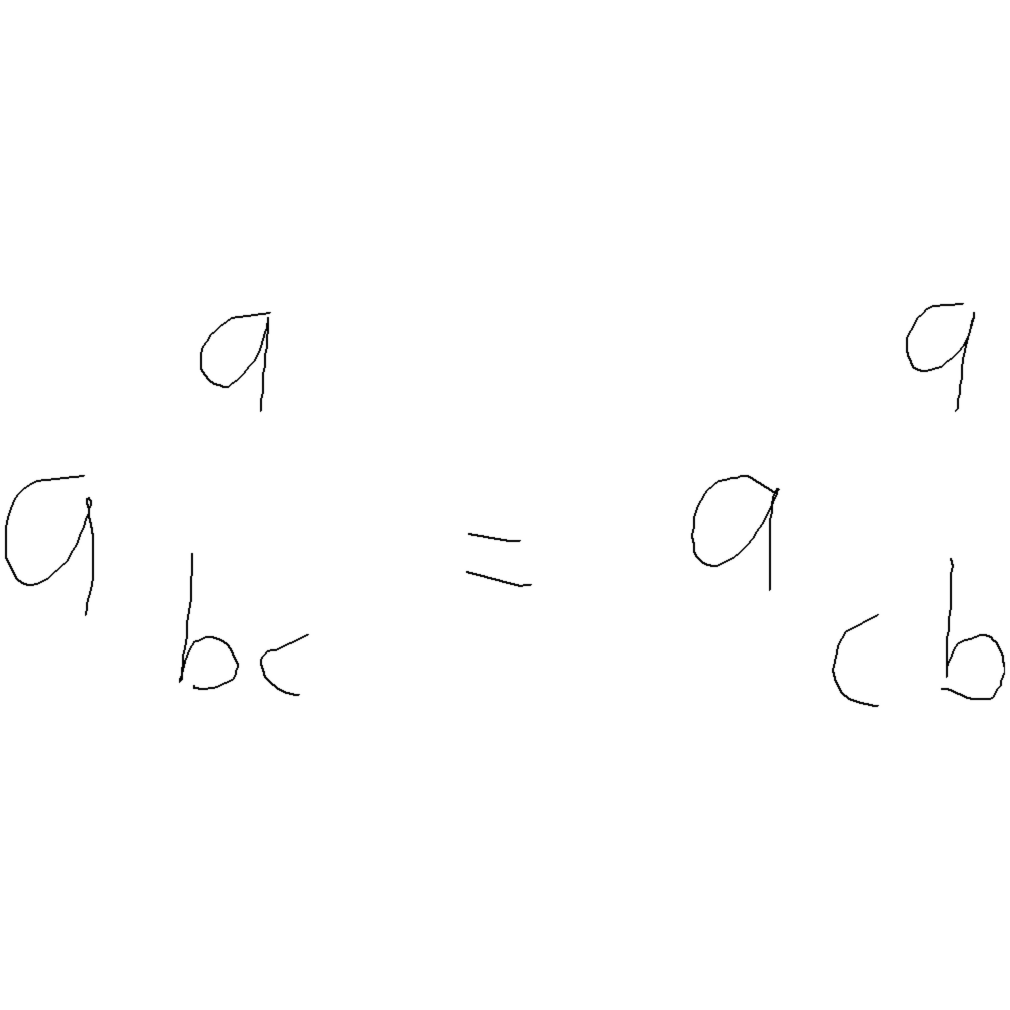 a^a_{bc} = a^a_{cb}